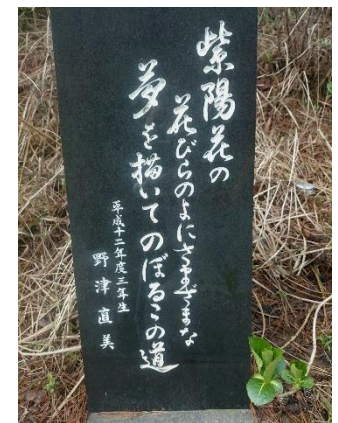 紫陽花の
花びらのよにさまざまな
夢を描いてのぼるこの道
平成十二年度三年生
野津直美